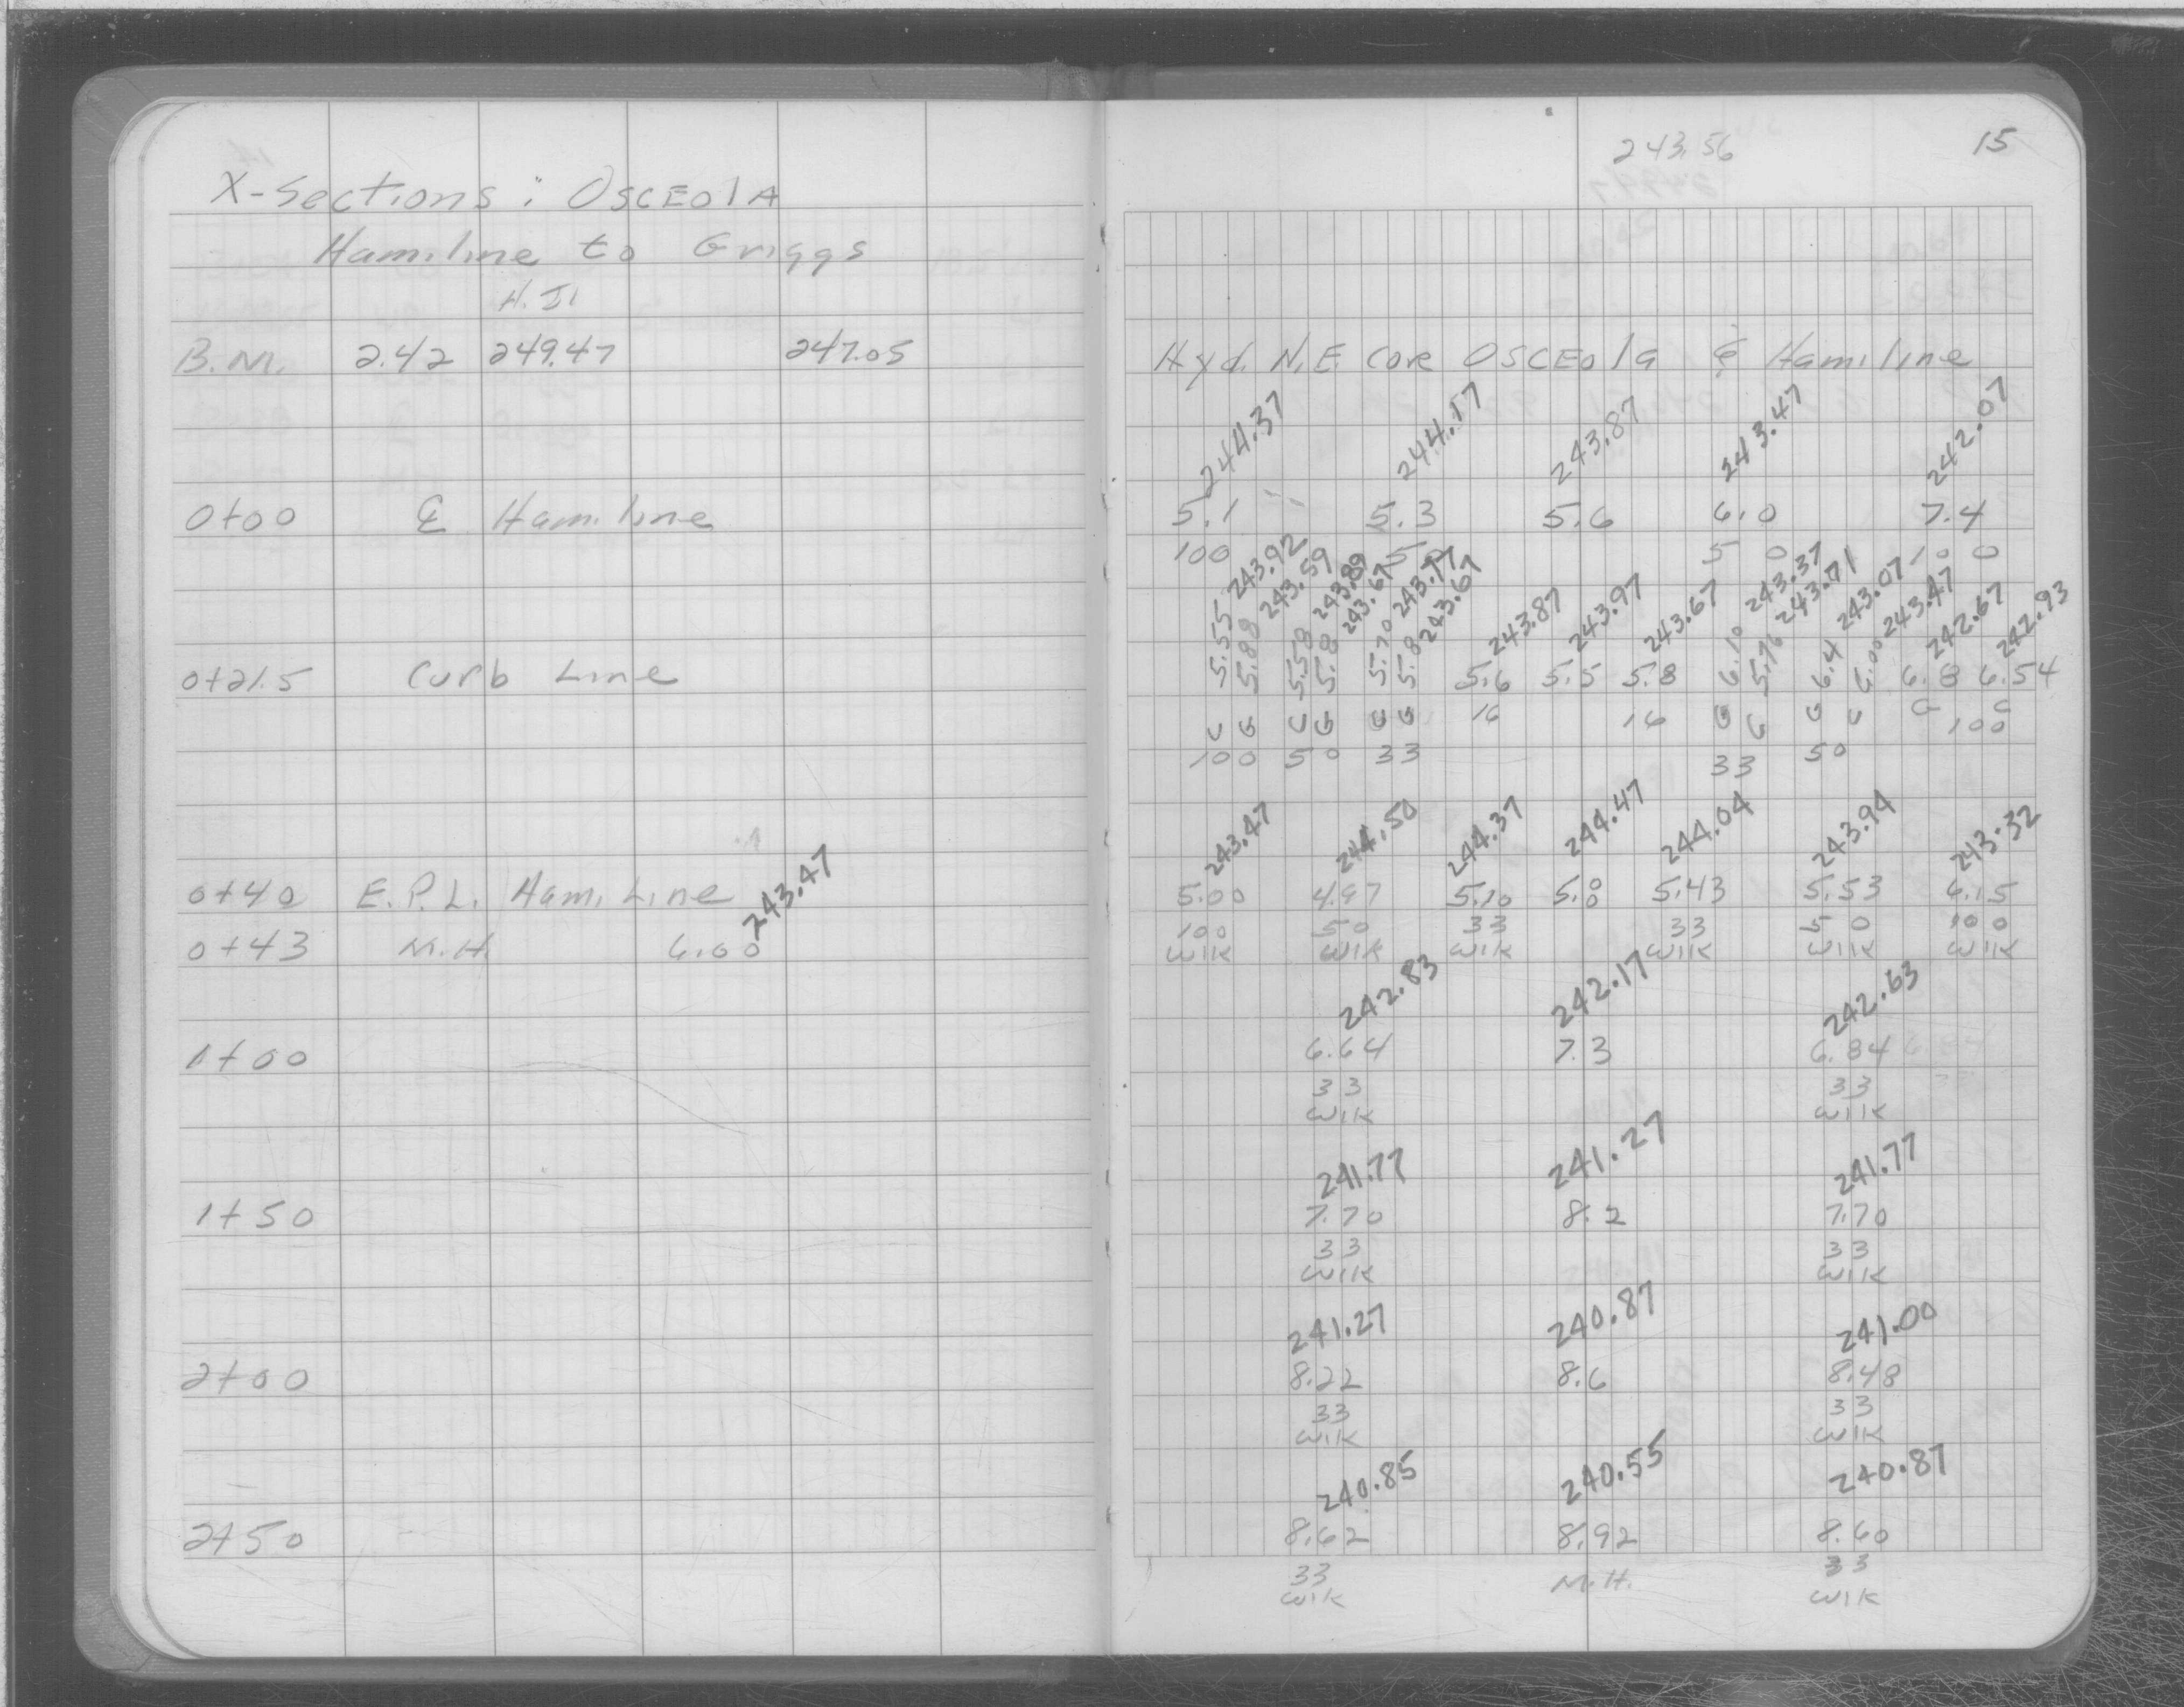 X-Sections : OSCEOlA
Hamiline to Griggs
H.I.
B.M. 2.42 249.47 247.05
0+00 ℄ Hamiline
0+21.5 Curb Line
0+40 E.P.L. Ham. Line
0+43 M.H. 6.00 243.47
1+00
1+50
2+00
2+50
243.56 15
Hyd. N.E. Cor OSCEola & Hamiline
244.37 244.17 243.87 243.47 242.07
5.1 5.3 5.6 6.0 7.4
100 50 50 100
243.92 243.59 243.89 243.67 243.77 243.67 243.87 243.97 243.67 243.37 243.71 243.07 243.47 242.67 242.93
5.55 5.88 5.58 5.8 5.70 5.8 5.6 5.5 5.8 6.10 5.76 6.4 6.00 6.8 6.54
C G C G G G 16 16 G G G C G C
100 50 33 33 50 100
243.47 244.50 244.37 244.47 244.04 243.94 243.32
5.00 4.97 5.10 5.0 5.43 5.53 6.15
100 50 33 33 50 100
Wlk Wlk Wlk Wlk Wlk Wlk
242.83 242.17 242.63
6.64 7.3 6.84
33 33
Wlk Wlk
241.77 241.27 241.77
7.70 8.2 7.70
33 33
Wlk Wlk
241.27 240.87 241.00
8.22 8.6 8.48
33 33
Wlk Wlk
240.85 240.55 240.87
8.62 8.92 8.60
33 M.H. 33
Wlk Wlk